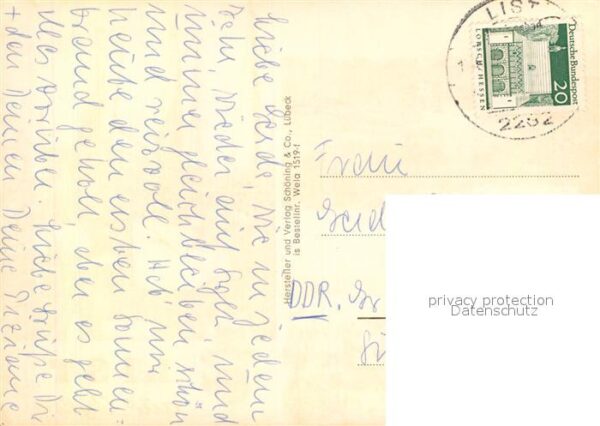 Liebe Gerda, wie in jedem
Jahr wieder auf Sylt, und
immer gleichbleibend schön
und reizvoll. Hab' mir
heute den ersten Sonnen-
brand geholt, aber es geht
alles vorüber. Liebe Grüße Dir
+ den Deinen Deine
Hersteller und Verlag Schöning & Co., Lübeck
is Bestellnr. Wela 1519-1
LIST
2282
Deutsche Bundespost
20
LORSCH/HESSEN
Frau
DDR,
privacy protection
Datenschutz